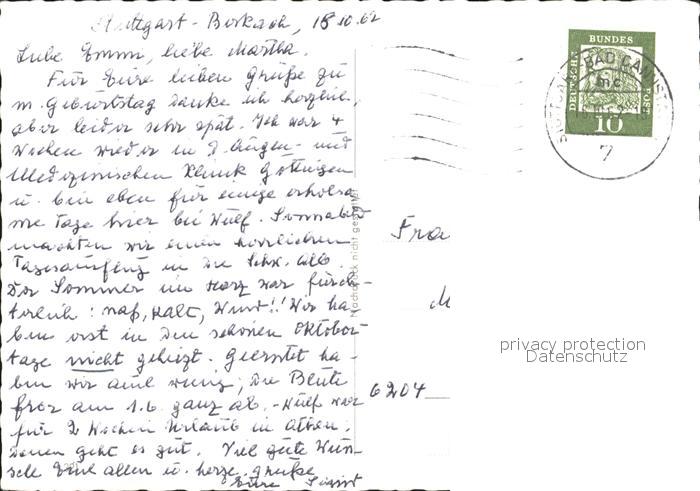 Stuttgart - Botnang, 18.10.62
Liebe Emmi, liebe Martha.
Für Eure lieben Grüße zu
m. Geburtstag danke ich herzlich,
aber leider sehr spät. Ich war 4
Wochen wieder in d. Augen- und
Medizinischen Klinik Göttingen
u. bin eben für einige erholsa
me Tage hier bei Wulf. Sonnabend
machten wir einen herrlichen
Tagesausflug in die Schw. Alb.
Der Sommer im Harz war fürch-
terlich: naß, kalt, Wind!! Wir ha-
ben erst in den schönen Oktober-
tage nicht geheizt. Geerntet ha-
ben wir auch wenig; die Blüte
fror am 1.6. ganz ab. - Wulf war
für 2 Wochen Urlaub in Athen;
denen geht es gut. Viel gute Wün-
sche Euch allen u. herzl. Grüße
Eure
Nachdruck nicht gestattet
DEUTSCHE BUNDES POST
10
BAD CANNST
7
Fra
6204
privacy protection
Datenschutz